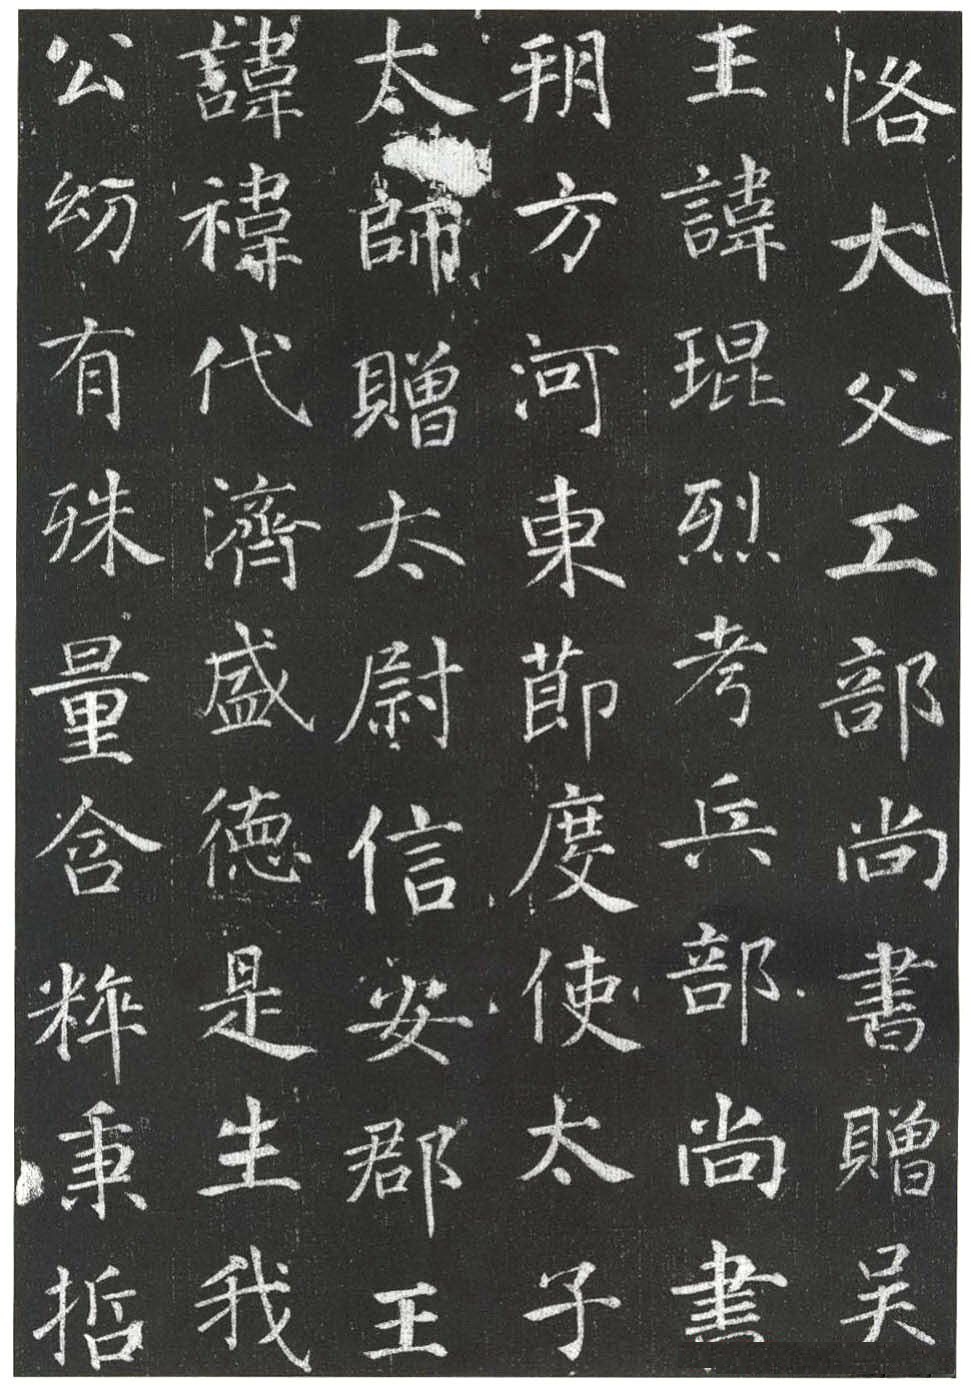 恪大父工部尚書贈吳
王諱琨烈考兵部尚書
朔方河東節度使太子
太師贈太尉信安郡王
諱禕代濟盛德是生我
公幼有殊量含粹秉哲